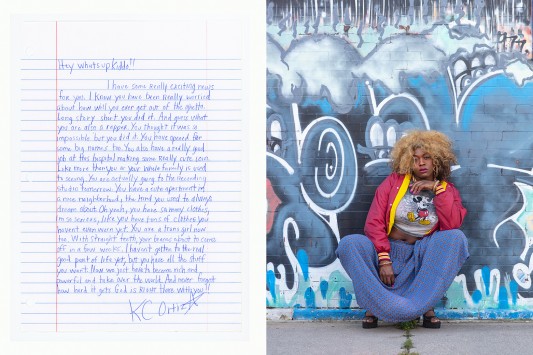 Hey whats up Kiddo!!
I have some really exciting news
for you. I know you have been really worried
about how will you ever get out of the ghetto
Long story short you did it. And guess what
you are also a rapper. You thought it was a
impossible but you did it. You have opened for
some big names too. You also have a really good
job at this hospital making some really cute coin.
Like more than you or your whole family is used
to seeing. You are actually going to the Recording
studio tomorrow. You have a cute apartment in
a nice neighborhood, the kind you used to always
dream about. Oh yeah, you have so many clothes,
like you have tons of clothes you
havent even worn yet. You are a trans girl now
too. With straight teeth, your braces about to come
off in a few weeks. I havent gotten to the real
good part of life yet, but you have all the stuff
you want. Now we just have to become rich and
powerful and take over the world. And never forget
how hard it gets God is Right there with you!!
KC Ortiz